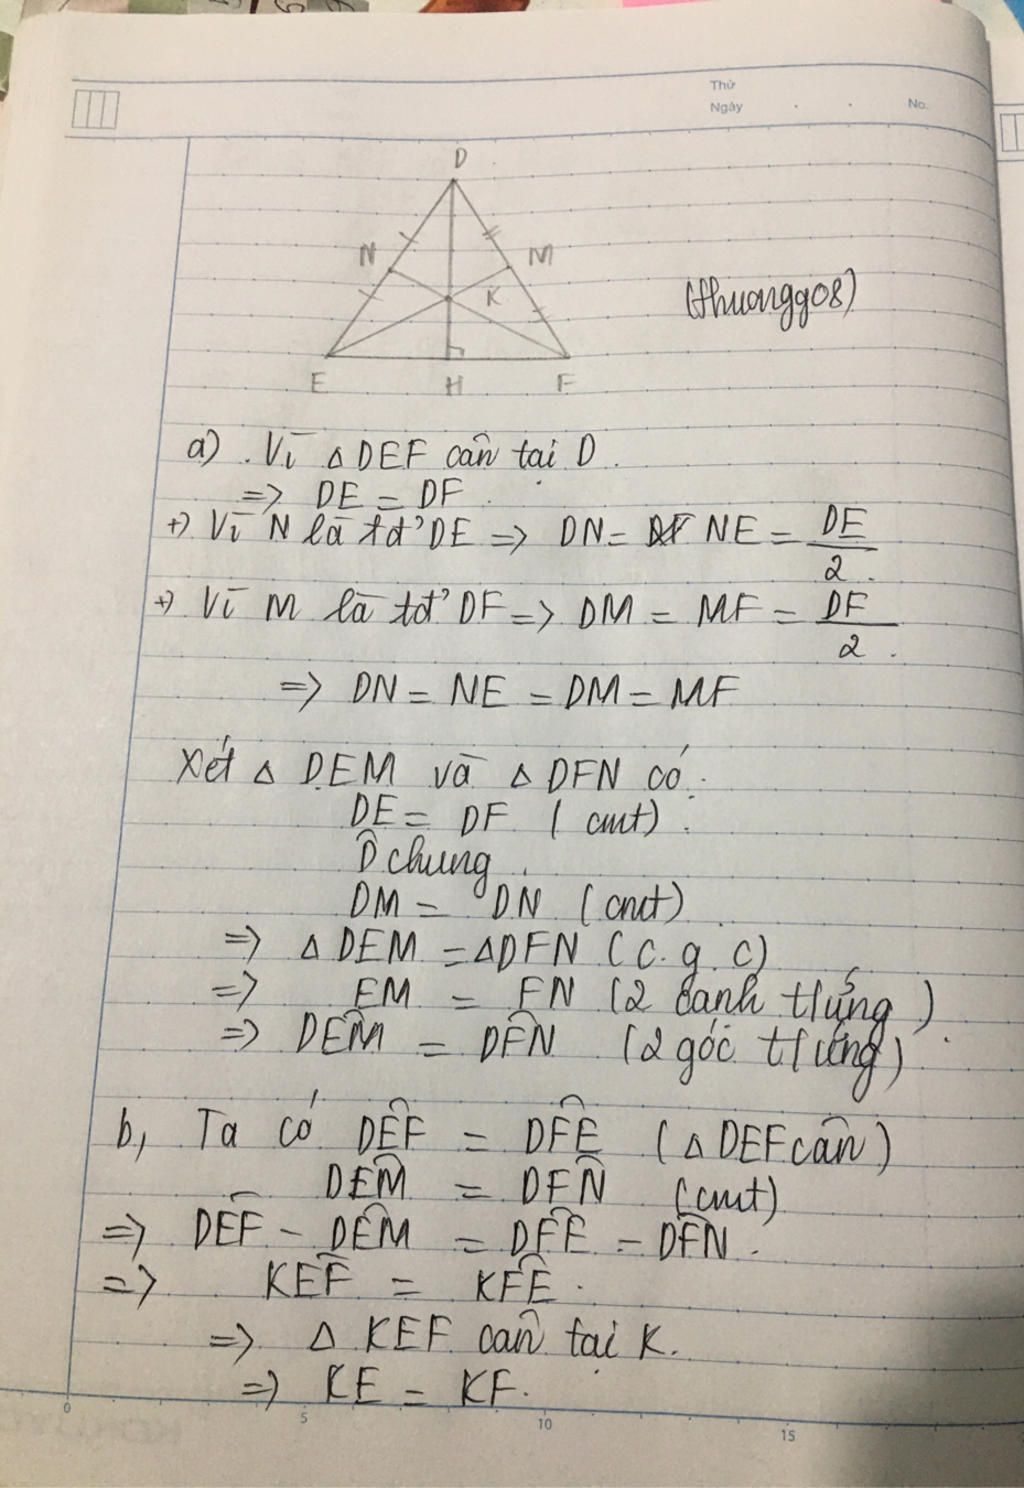 Thứ
Ngày . . No.
D
N M
K
(thuongg08)
E H F
a) . Vì △ DEF cân tại D.
=> DE = DF.
+) Vì N là tđ' DE => DN = NE = DE/2.
+) Vì M là tđ' DF => DM = MF = DF/2.
=> DN = NE = DM = MF
Xét △ DEM và △ DFN có:
DE = DF (cmt).
D̂ chung.
DM = DN (cmt)
=> △ DEM = △DFN (c.g.c)
=> EM = FN (2 cạnh tứng)
=> DÊM = DF̂N (2 góc tứng).
b, Ta có DÊF = DF̂E (△ DEF cân)
DÊM = DF̂N (cmt)
=> DÊF - DÊM = DF̂E - DF̂N.
=> KÊF = KF̂E.
=> △ KEF cân tại K.
=> KE = KF.
0 5 10 15